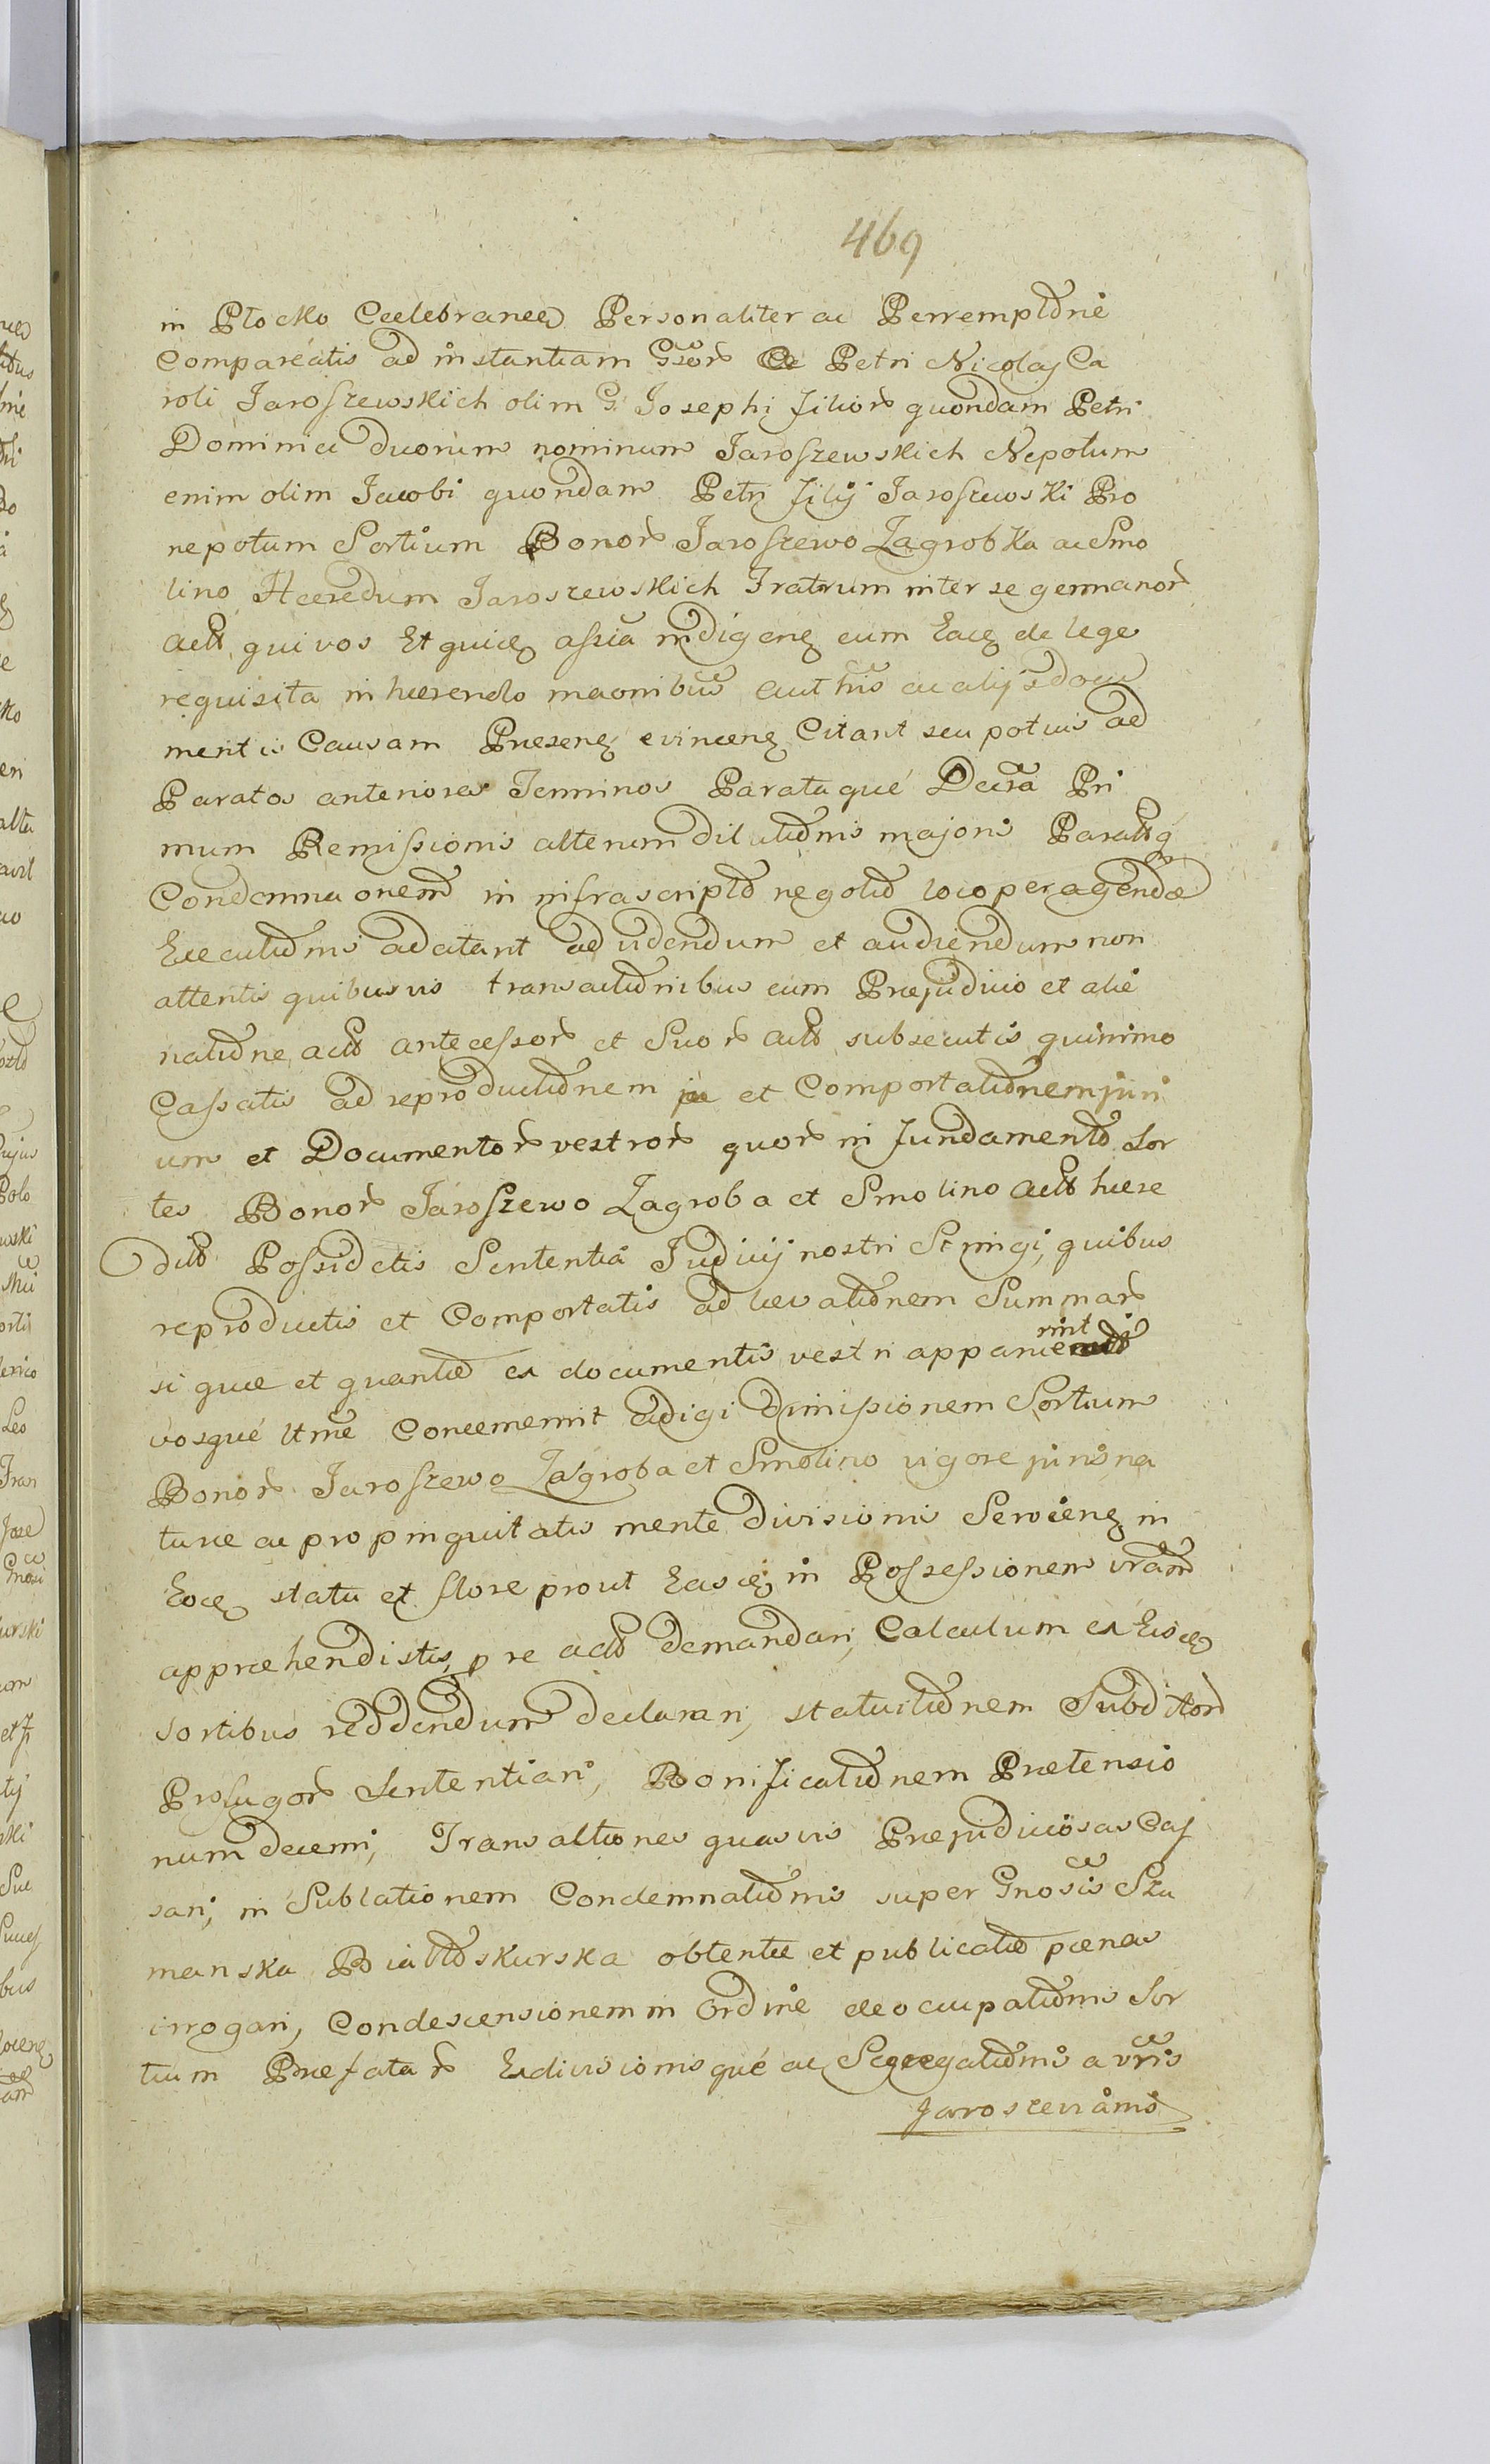 469
in Płocko Cælebranæ Personaliter ac Perremptorie
Compareatis ad instantiam Gsor Petri Nicolaj Ca
roli Jaroszewskich olim G. Josephi filior quondam Petri
Dominici duorum nominum Jaroszewskich Nepotum
enim olim Jacobi quondam Petri filij Jaroszewski Pro
nepotum Sortium Bonor Jaroszewo Zagrobka ac Smo
lino Hæredum Jaroszewskich Fratrum inter se germanor
act qui vos Et quidem indigen cum de lege
requisita in hærendo ac alijs docu
mentis Causam Præsen evincen Citant seu potius ad
Paratos anteriores Terminos Parataque Decra Pri
mum Remissionis alterum dilationis majoris Parat q
Condemnaonem in infrascripto negotio loco peragendæ
Executionis adcitant ad videndum et audiendum non
attentis quibusvis transactionibus cum Præjudicio et alie
natione act antecessor et Suor act subsecutis quinimo
Cassatis ad reproductionem et Comportationem juri
um et Documentor vestror quor in fundamento Sor
tes Bonor Jaroszewo Zagroba et Smolino act hære
dit Possidetis Sententia Judicij nostri Stringi, quibus
reproductis et Comportatis ad levationem Summar
si quæ et quanto ex documentis vestri apparue rint
vosque ltme Concernerint adigi dimissionem Sortium
Bonor Jaroszewo Zagroba et Smolino vigore juris na
turæ ac propinquitatis mente divisionis Servien in
Eoce statu et flore prout Easce in Possessionem vram
appræhendistis, p re act demandari, Calculum ex Eisce
sortibus reddendum declarari, statuitionem Subditor
Profugor Sententiari, Bonificationem Prætensio
num decerni, Transactiones quasvis Præjudiciosas Cas
sari, in Sublationem Condemnationis super Gnosis Szu
manska Białoskurska obtentæ et publicatæ pænas
irrogari, Condescensionem in Ordine deocupationis Sor
tium Præfatar Exdivisionisque ac Segregationis a vris
Jaroszevianis